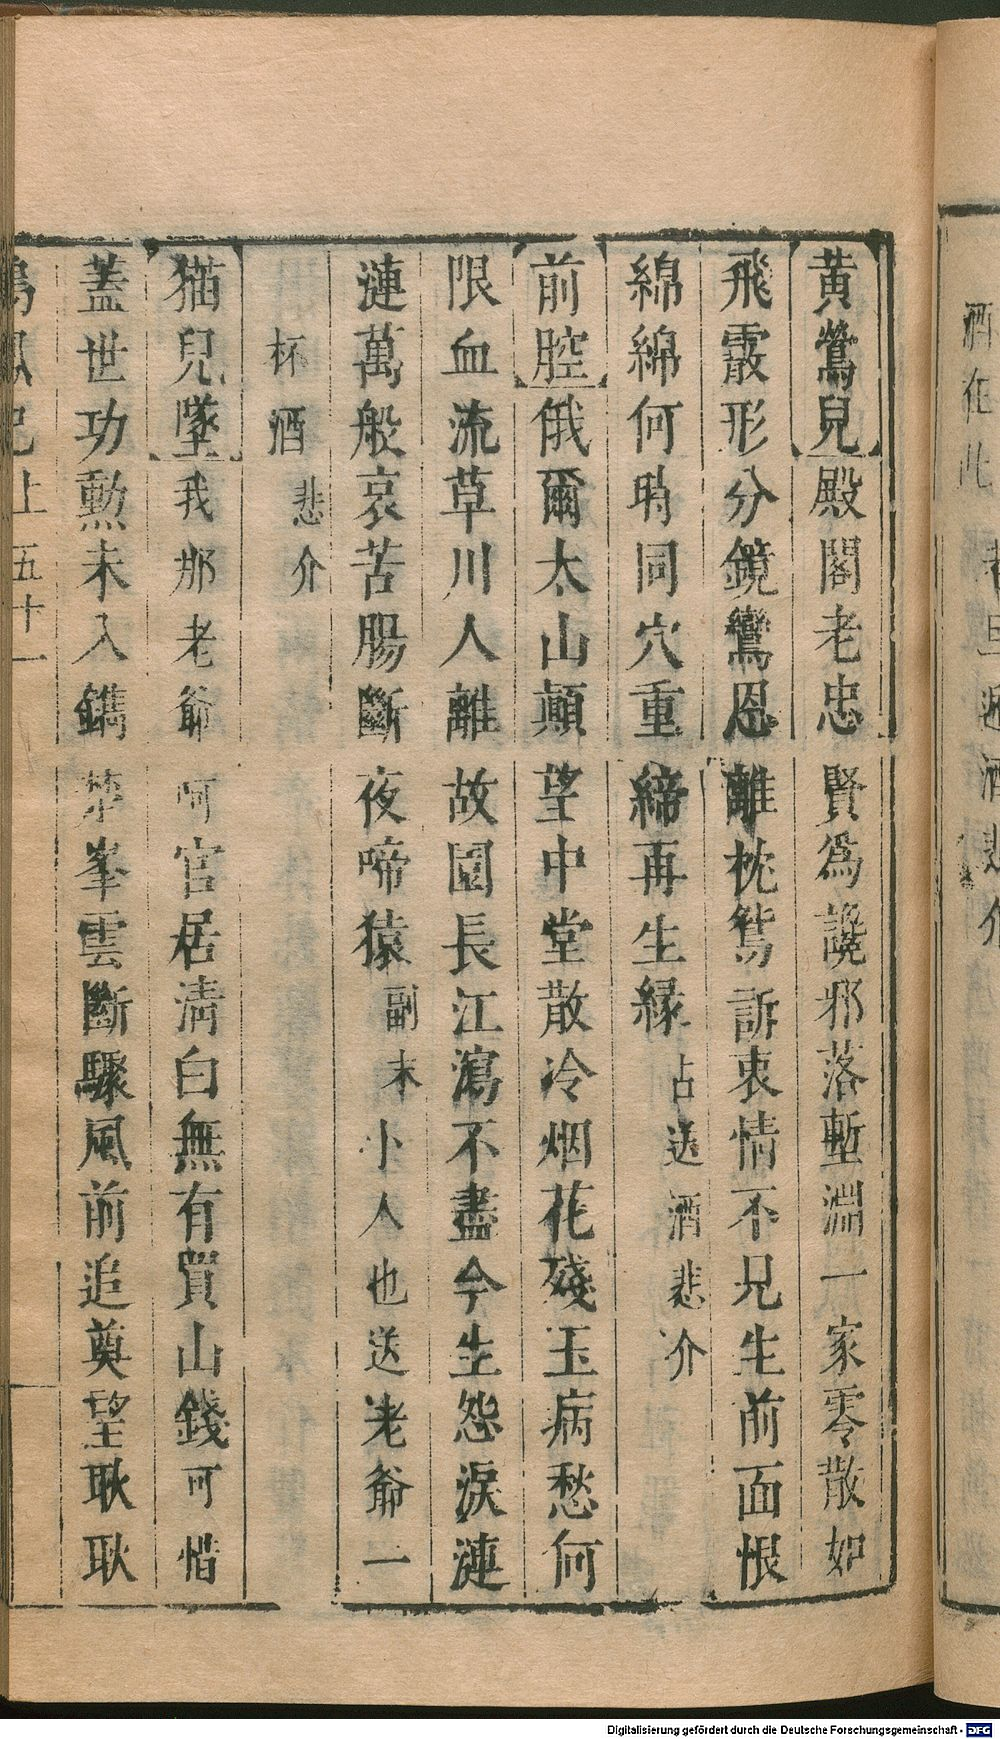 黃鶯兒殿閣老忠賢爲讒邪落塹淵一家零散如
飛霰形分鏡鸞恩離枕鴛訴衷情不見生前面恨
綿綿何時同穴重締再生緣占送酒悲介
前腔俄爾太山顛望中堂散冷烟花殘玉病愁何
限血流草川人離故園長江瀉不盡今生怨淚漣
漣萬般哀苦腸斷夜啼猿副末小人也送老爺一
杯酒悲介
猫兒墜我那老爺呵官居清白無有買山錢可惜
蓋世功勲未入鐫禁峯雲斷驟風前追奠望耿耿
鳴鳳記上五十一
Digitalisierung gefördert durch die Deutsche Forschungsgemeinschaft - DFG